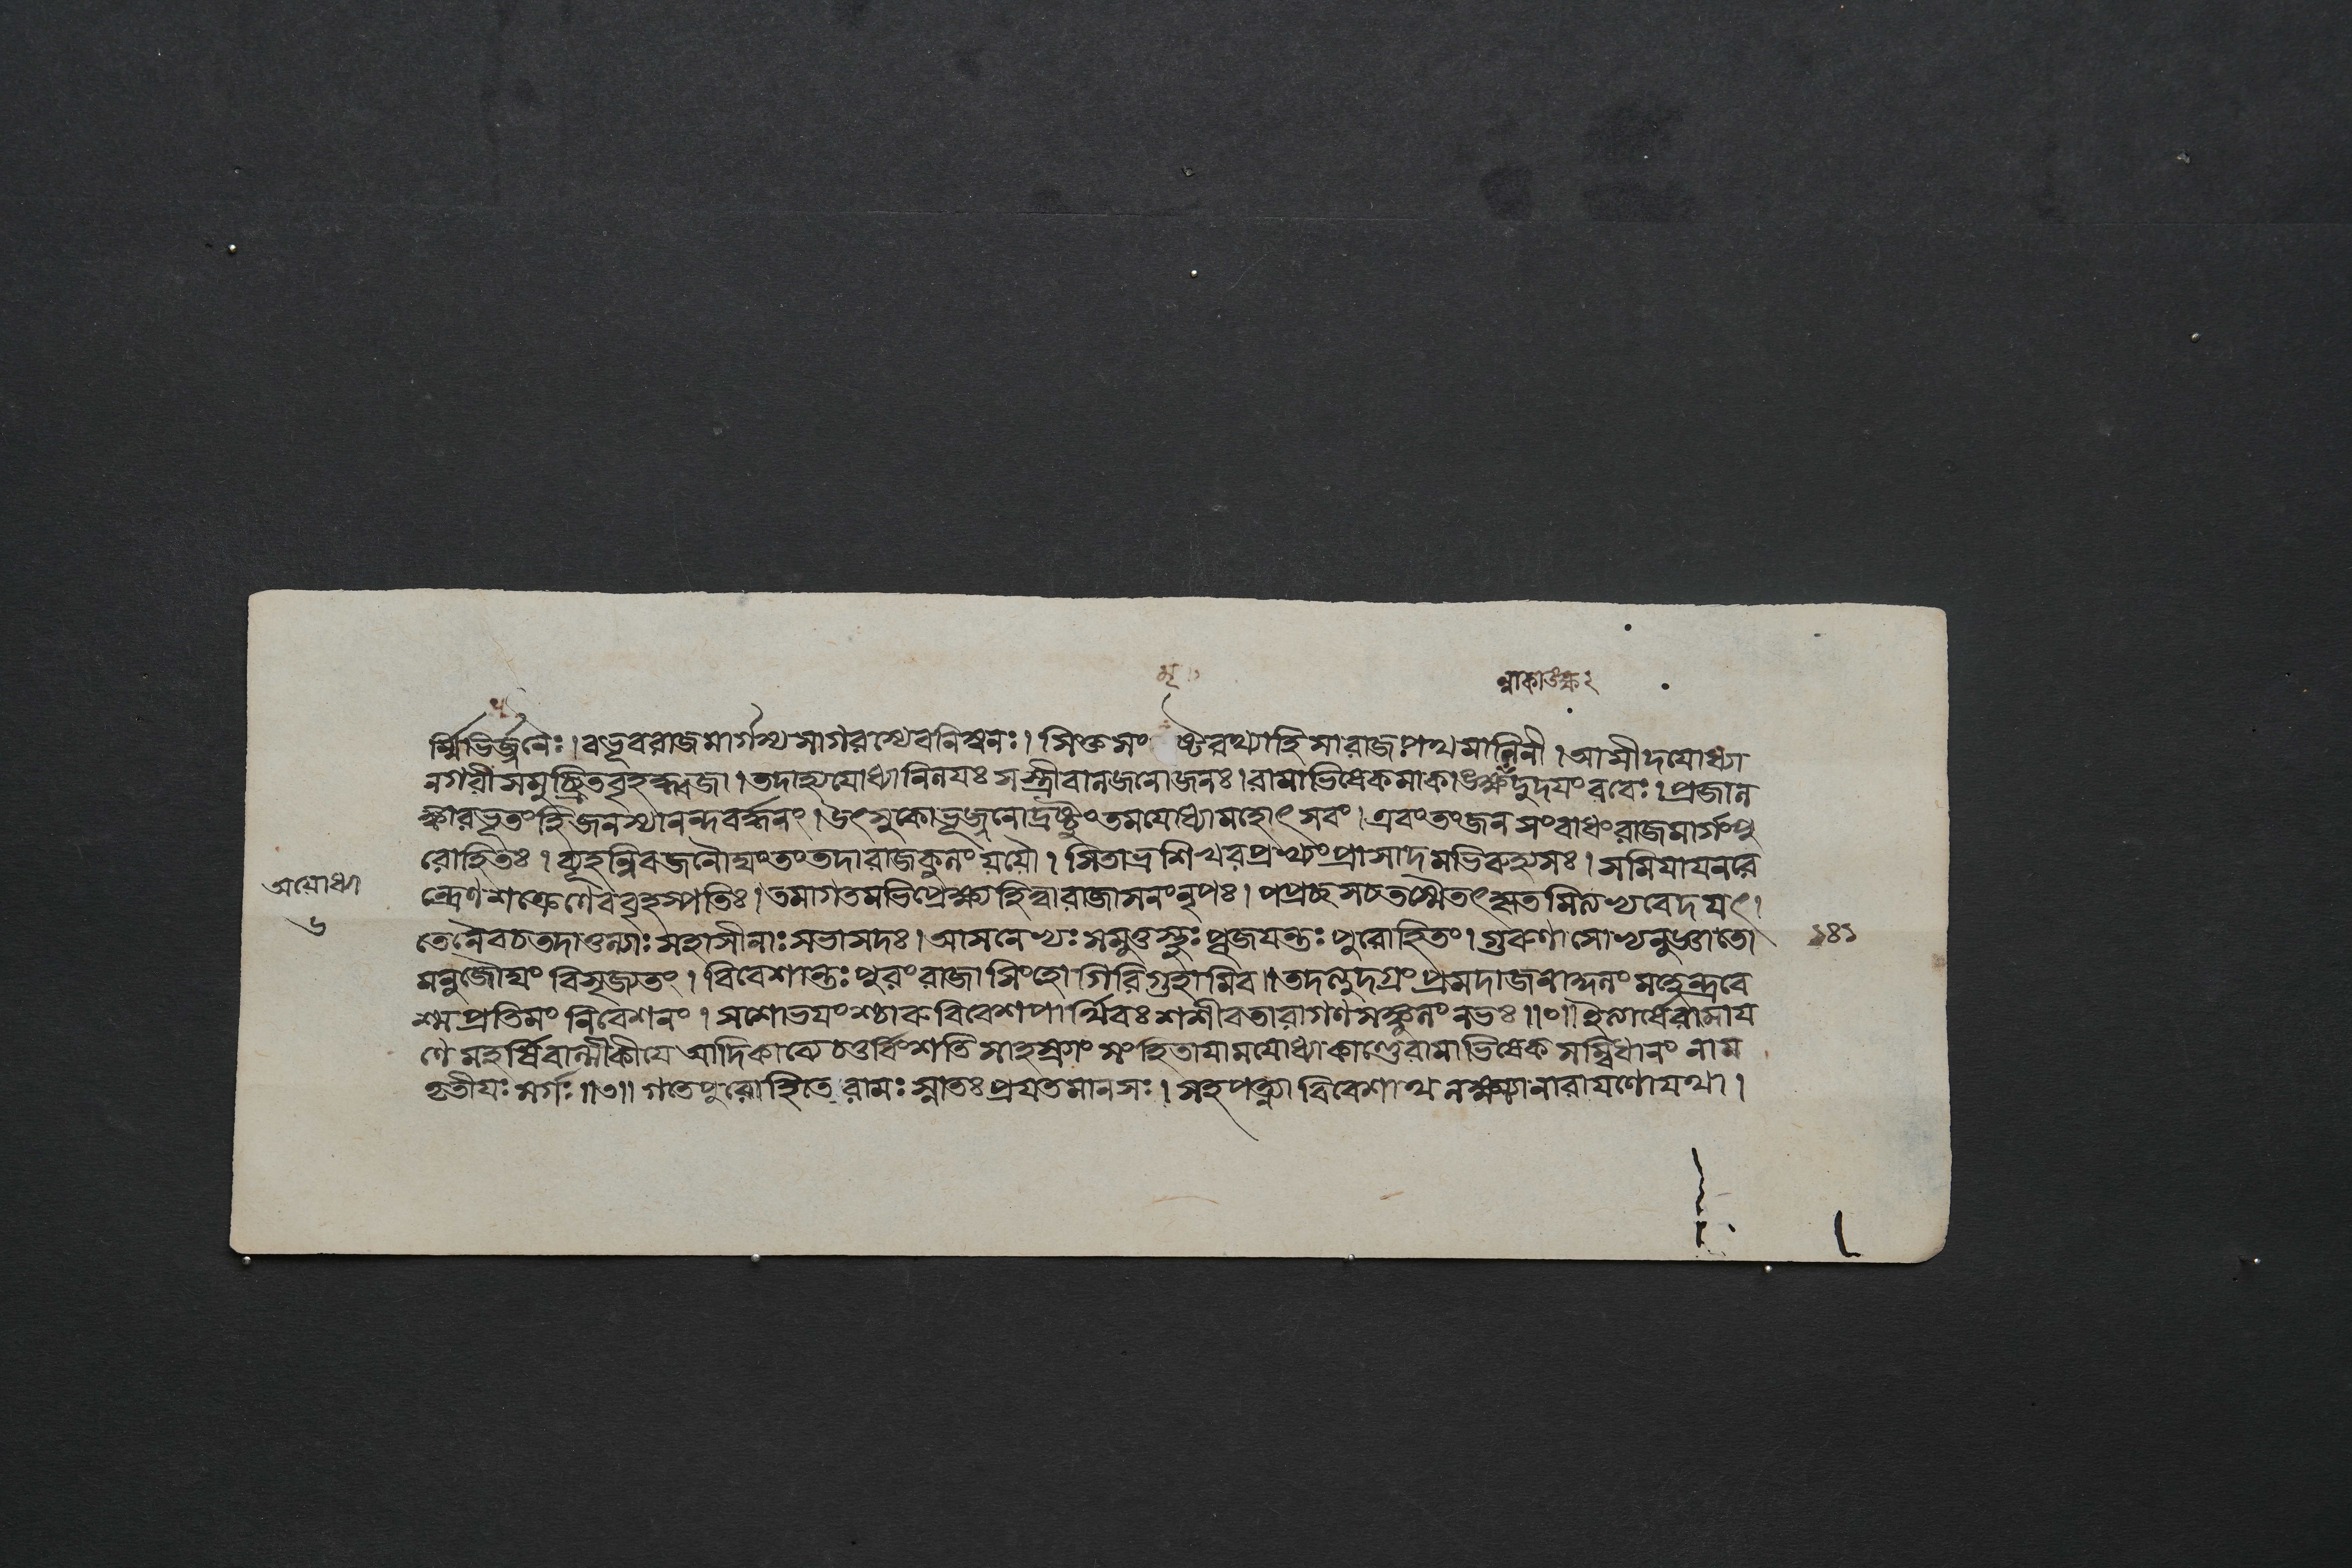 অযোধ্যা
৬
র্ম্মিভির্জ্জনৈঃ। বভূবরাজমার্গস্যসাগরস্যেবনিস্বনঃ। সিক্তসং ষ্টরথ্যাহিসারাজপথমালিনী। আসীদযোধ্যা
নগরীসমুচ্ছ্রিতবৃহদ্ধ্বজা। তদাহ্যযোধ্যানিলযঃ সস্ত্রীবালজনোজনঃ। রামাভিষেকমাকাঙ্ক্ষন্দুদযংরবেঃ। প্রজাল
ঙ্কারভূতংহিজনস্যানন্দবর্দ্ধনং। উৎসুকোভূজ্জনোদ্রষ্টুংতমযোধ্যামহোৎসবং। এবংতংজনসংবাধংরাজমার্গংপু
রোহিতঃ। ব্যূহন্নিবজনৌঘংতংতদারাজকুলংযযৌ। সিতাভ্রশিখরপ্রখ্যংপ্রাসাদমভিরুহ্যসঃ। সমিযাযনরে
ন্দ্রেণশক্রেণেববৃহস্পতিঃ। তমাগতমভিপ্রেক্ষ্যহিত্বারাজাসনংনৃপঃ। পপ্রচ্ছসচতস্মৈতৎকৃতমিত্যভ্যবেদযৎ।
তেনৈবচতদাতুল্যাঃ সহাসীনাঃ সভাসদঃ। আসনেভ্যঃ সমুত্তস্থুঃ পূজযন্তঃ পুরোহিতং। গুরুণাসোভ্যনুজ্ঞাতো
মনুজৌঘং বিসৃজ্যতং। বিবেশান্তঃপুরংরাজা সিংহো গিরিগুহামিব।। তদত্যুদগ্রং প্রমদাজনাকুলং মহেন্দ্রবে
শ্মপ্রতিমং নিবেশনং। সশোভযংশ্চারুবিবেশপার্থিবঃ শশীবতারাগণসঙ্কুলংনভঃ।।০।। ইত্যার্ষেরামায
ণে মহর্ষিবাল্মীকীযে আদিকাব্যেচতুর্বিংশতিসাহস্র্যাং সংহিতাযামযোধ্যাকাণ্ডেরামাভিষেকসম্বিধানং নাম
তৃতীযঃ সর্গঃ।।৩।। গতেপুরোহিতে রামঃ স্নাতঃ প্রযতমানসঃ। সহপত্ন্যা বিবেশাথ লক্ষ্ম্যানারাযণোযথা।
১৪১